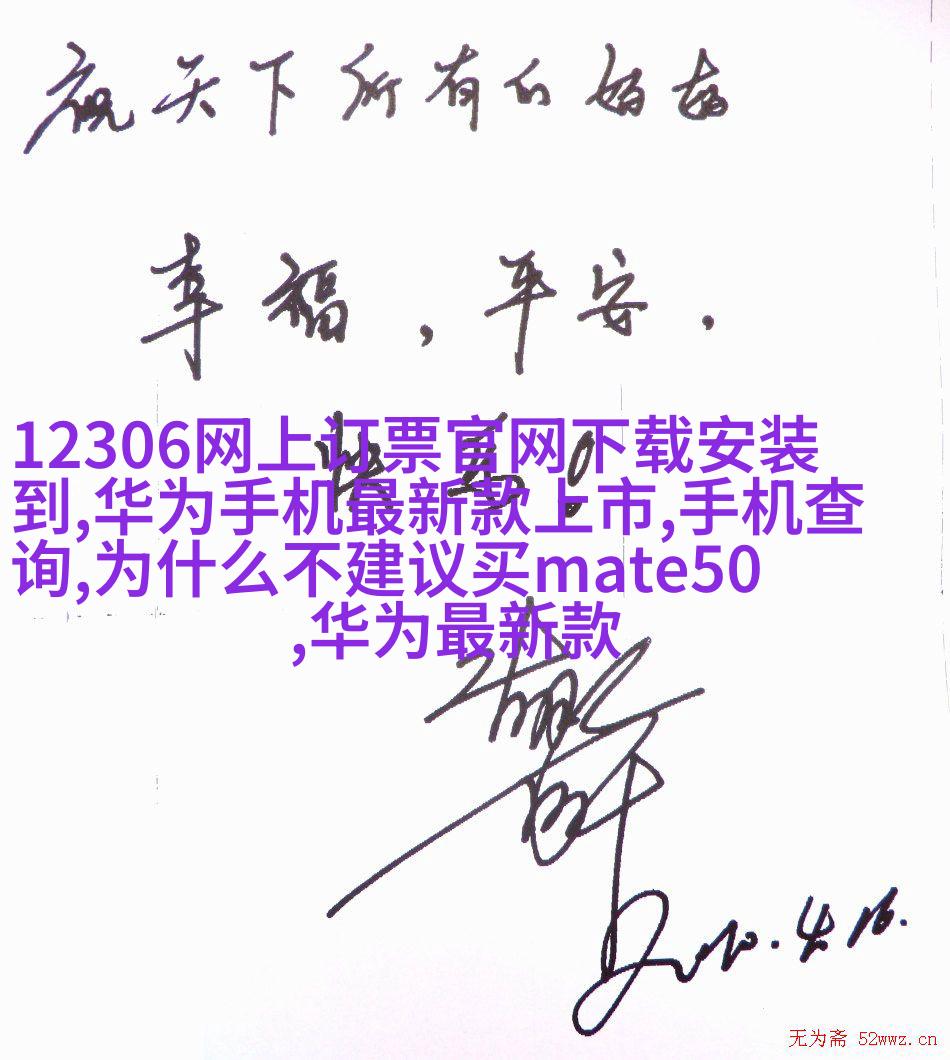 祝天下所有的妈妈
幸福,平安,
12306网上订票官网下载安装
到,华为手机最新款上市,手机查
询,为什么不建议买mate50
,华为最新款
2010.4.16.
无为斋 52wwz.cn